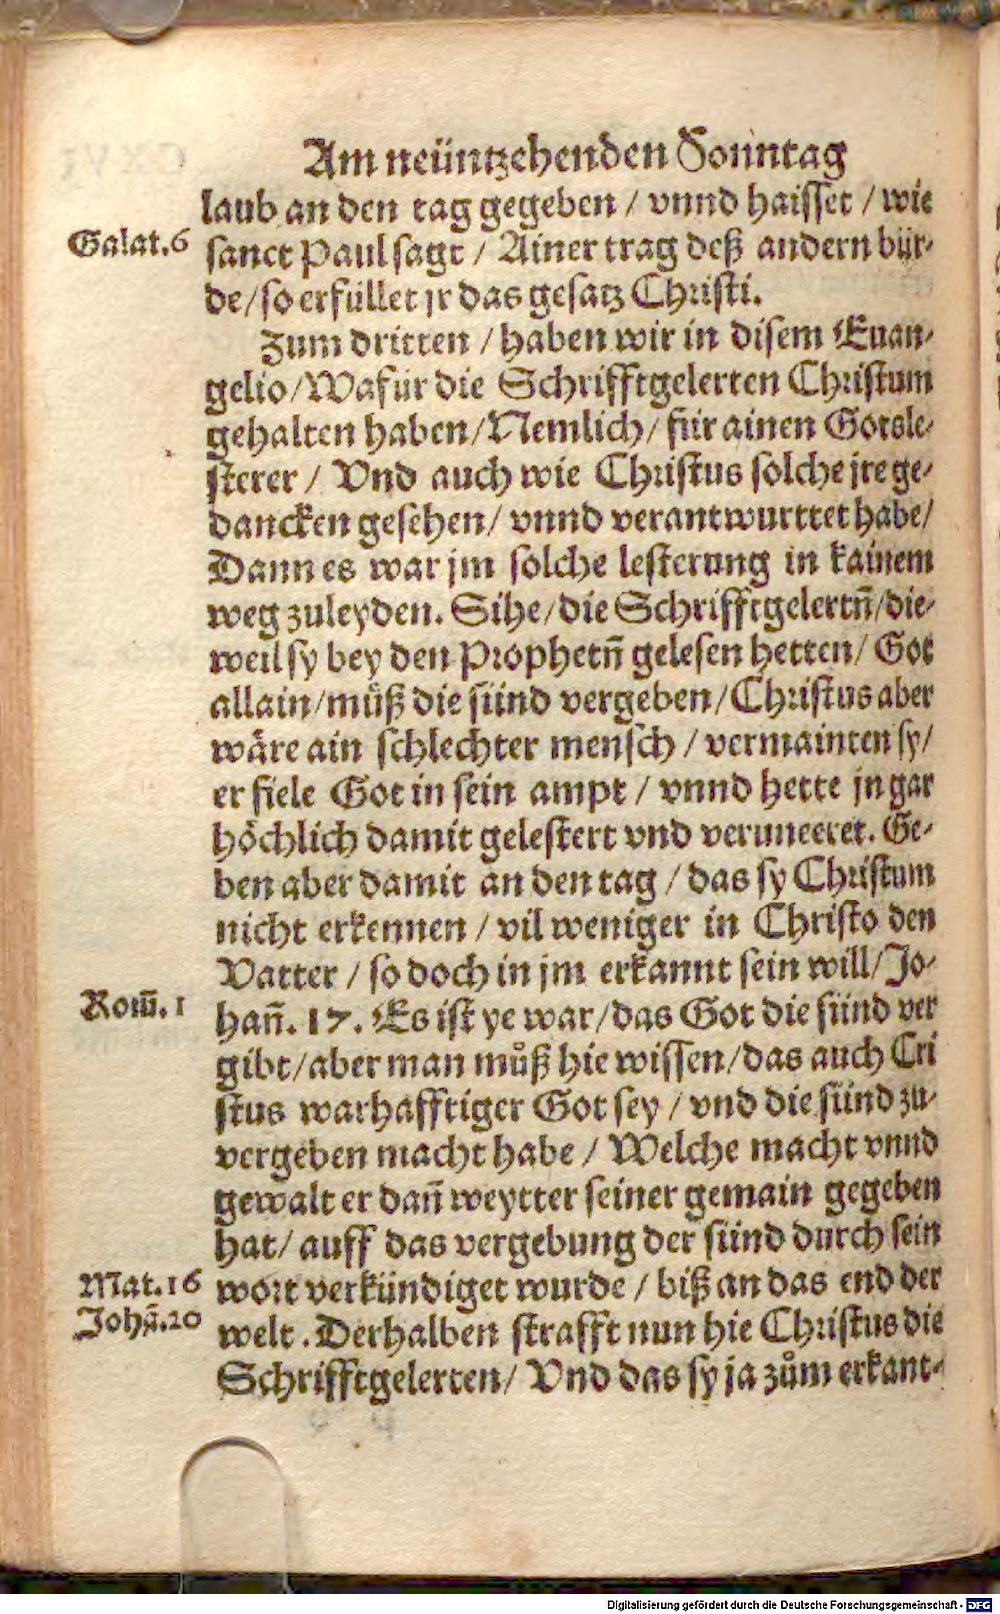 Am neüntzehenden Sonntag
laub an den tag gegeben / vnnd haisset / wie
Galat.6 sanct Paul sagt / Ainer trag deß andern bür-
de/ so erfüllet jr das gesatz Christi.
Zum dritten / haben wir in disem Euan-
gelio/ Wafür die Schrifftgelerten Christum
gehalten haben/ Nemlich/ für ainen Gotsle-
sterer / Vnd auch wie Christus solche jre ge-
dancken gesehen/ vnnd verantwurttet habe/
Dann es war jm solche lesterung in kainem
weg zuleyden. Sihe/ die Schrifftgelertn̄/ die-
weil sy bey den Prophetn̄ gelesen hetten/ Got
allain/ můß die sünd vergeben/ Christus aber
wäre ain schlechter mensch / vermainten sy/
er fiele Got in sein ampt / vnnd hette jn gar
höchlich damit gelestert vnd veruneeret. Ge-
ben aber damit an den tag / das sy Christum
nicht erkennen / vil weniger in Christo den
Vatter / so doch in jm erkannt sein will/ Jo-
Rom̄. 1 han̄. 17. Es ist ye war/ das Got die sünd ver
gibt/ aber man můß hie wissen/ das auch Cri
stus warhafftiger Got sey / vnd die sünd zu-
vergeben macht habe / Welche macht vnnd
gewalt er dan̄ weytter seiner gemain gegeben
hat/ auff das vergebung der sünd durch sein
Mat.16 wort verkündiget wurde / biß an das end der
Johā.20 welt. Derhalben strafft nun hie Christus die
Schrifftgelerten/ Vnd das sy ja zům erkant-
Digitalisierung gefördert durch die Deutsche Forschungsgemeinschaft - DFG